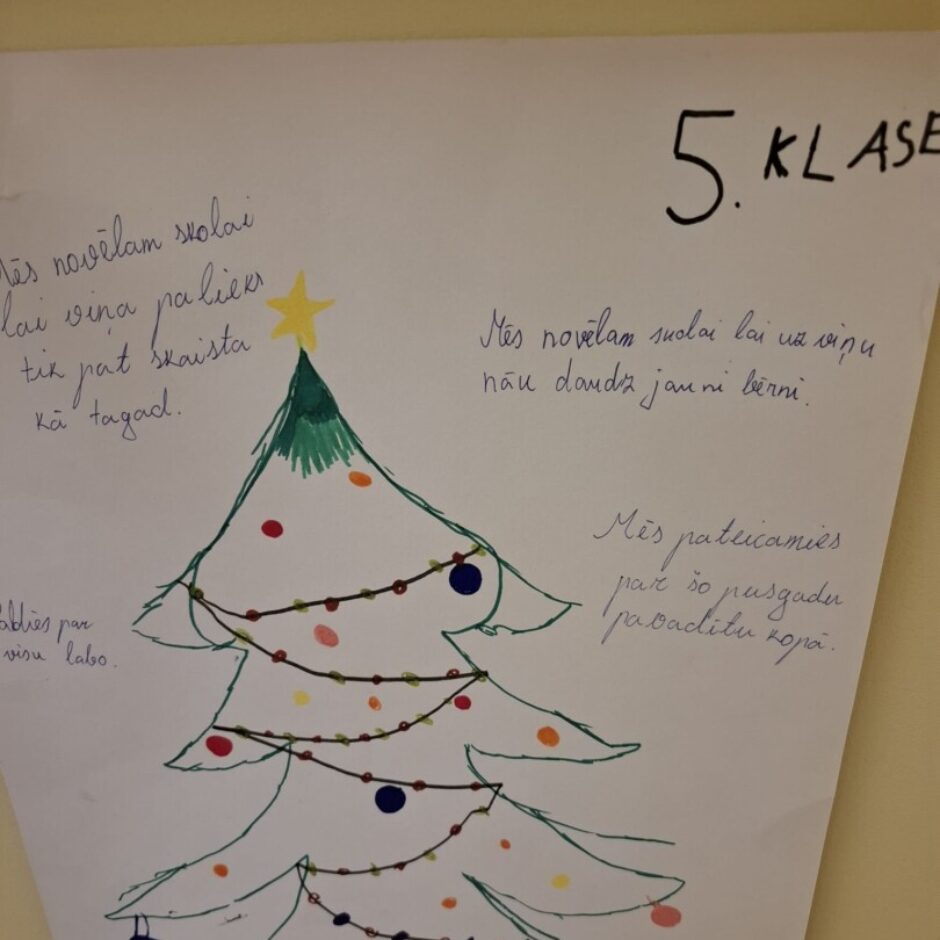 5. KLASE
Mēs novēlam skolai
lai viņa palieks
tik pat skaista
kā tagad.
Mēs novēlam skolai lai uz viņu
nāu daudz jauni bērni.
Mēs pateicamies
par šo pusgadu
pavadītu kopā.
Paldies par
visu labo.